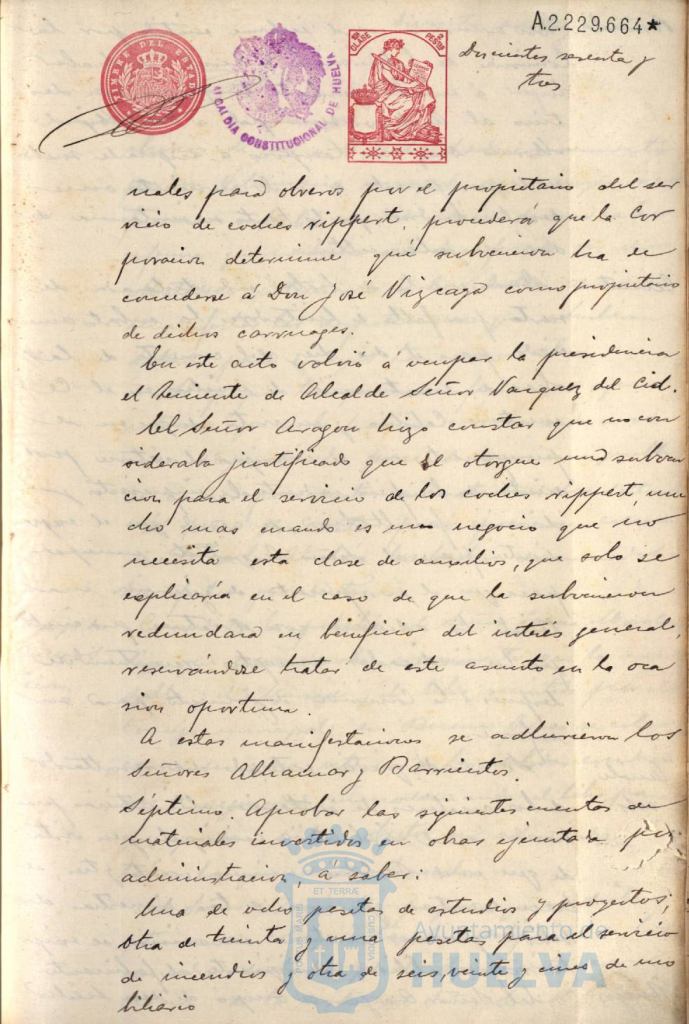 A.2.229.664★
TIMBRE DEL ESTADO
ALCALDIA CONSTITUCIONAL DE HUELVA
CLASE
2 PESETAS
Duscientos sesenta y
tres
uales para obreros por el propietario del ser
vicio de coches rippert, procederá que la Cor
poracion determine qué subvencion ha de
concederse á Don José Vizcaya como propietario
de dichos carruages.
En este acto volvió á ocupar la presidencia
el Teniente de Alcalde Señor Vazquez del Cid.
El Señor Aragon hizo constar que no con
sideraba justificado que se otorgue una subven
cion para el servicio de los coches rippert, mu
cho mas cuando es un negocio que no
necesita esta clase de auxilios, que solo se
esplicaria en el caso de que la subvencion
redundara en beneficio del interés general,
reservándose tratar de este asunto en la oca
sion oportuna.
A estas manifestaciones se adhirieron los
Señores Alhamar y Barrientos.
Séptimo. Aprobar las siguientes cuentas de
materiales invertidos en obras ejecutadas por
administracion, á saber:
Una de ocho pesetas de estudios y proyectos;
otra de treinta y una pesetas para el servicio
de incendios y otra de seis, veinte y cinco de mo
biliario
Ayuntamiento de
HUELVA
ET TERRÆ